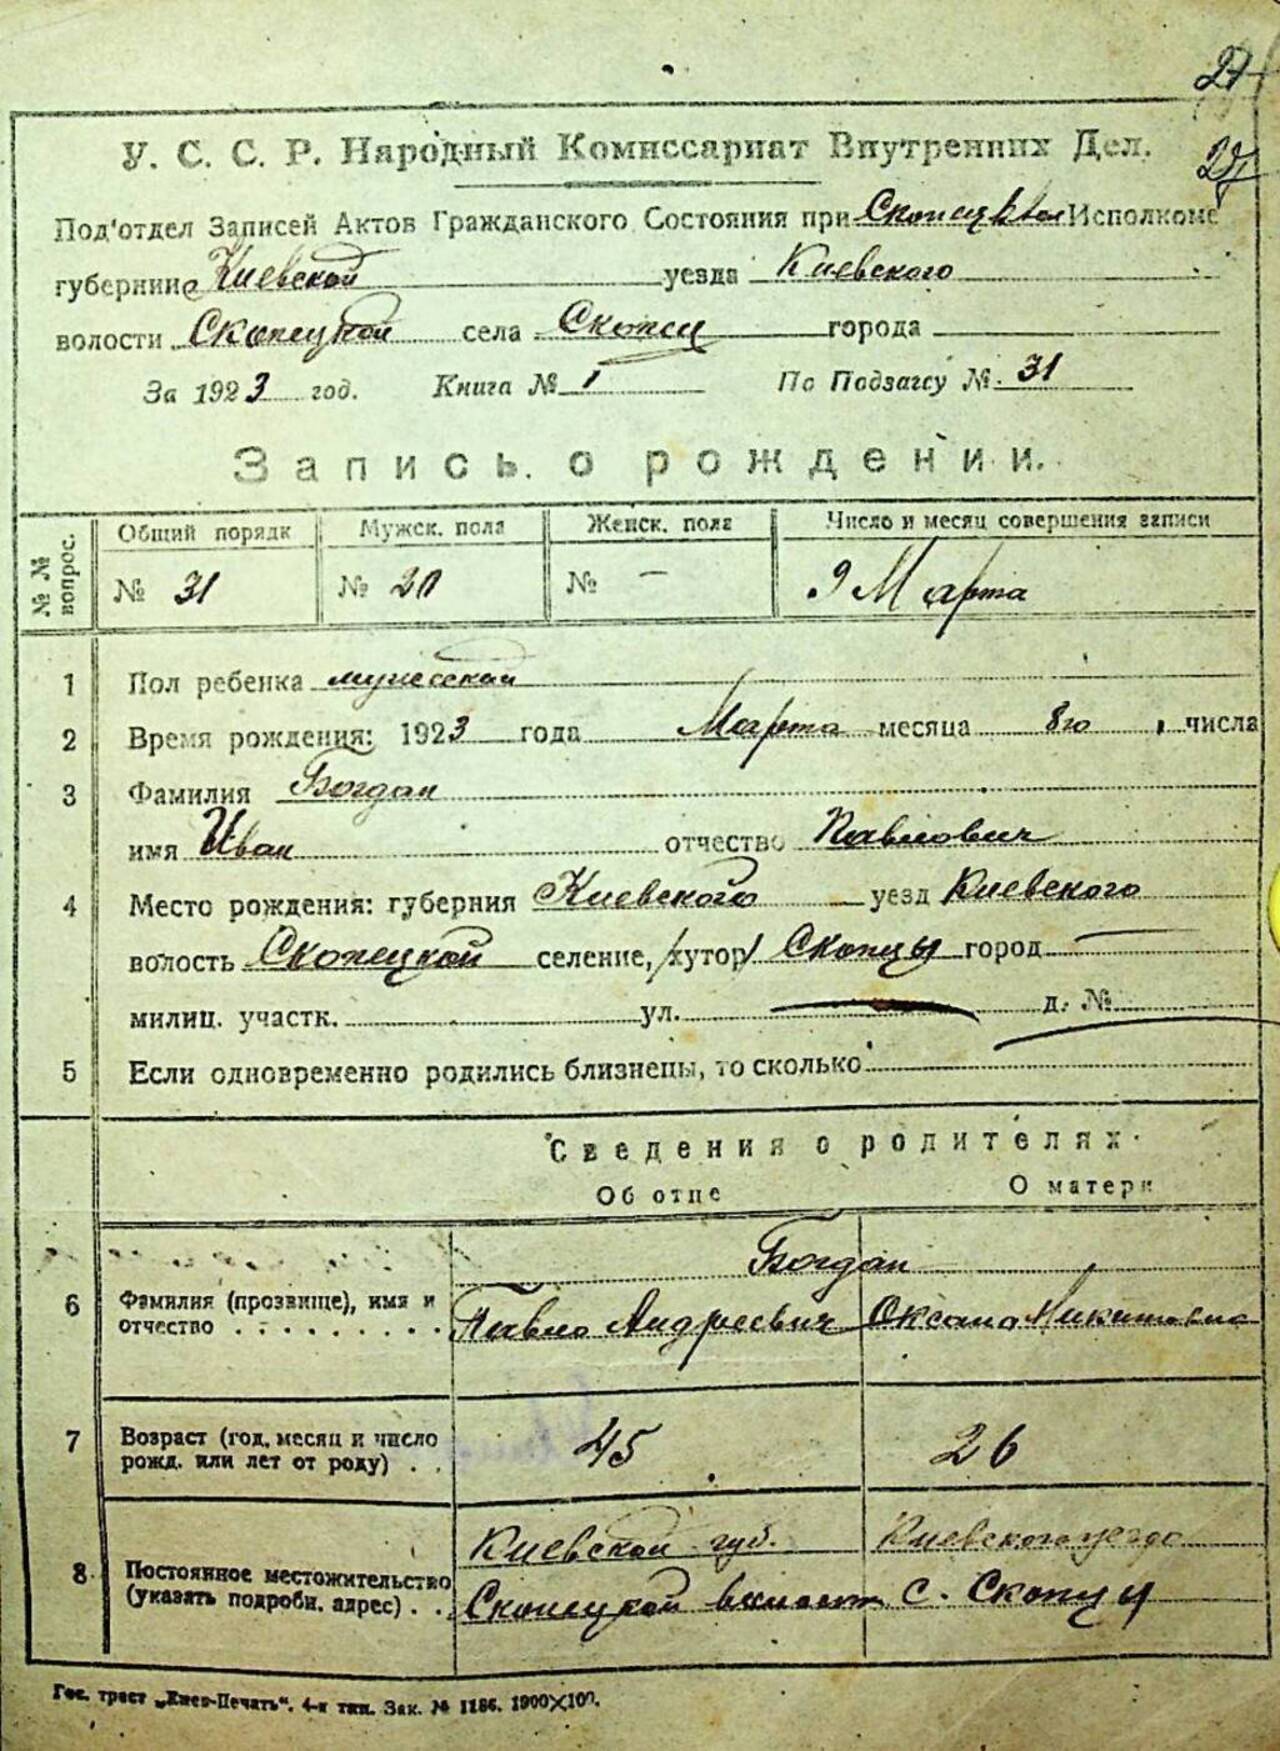 27
27
У. С. С. Р. Народный Комиссариат Внутренних Дел.
Под'отдел Записей Актов Гражданского Состояния при Исполкоме
губернии Киевской уезда Киевского
волости Скопецкой села Скопцы города
За 1923 год. Книга № 1 По Подзагсу №. 31
Запись о рождении.
№ № вопрос. Общий порядк Мужск. пола Женск. пола Число и месяц совершения записи
№ 31 № 20 № — 9 Марта
1 Пол ребенка мужеской
2 Время рождения: 1923 года Марта месяца 8го числа
3 Фамилия Богдан
имя Иван отчество Павлович
4 Место рождения: губерния Киевского уезд Киевского
волость Скопецкой селение, /хутор/ Скопцы город —
милиц. участк. ул. — д. №
5 Если одновременно родились близнецы, то сколько
Сведения о родителях.
Об отце О матери
Богдан
6 Фамилия (прозвище), имя и
отчество . . . . . . . . . Павло Андреевич Оксана Никитовна
7 Возраст (год, месяц и число
рожд. или лет от роду) . . 45 26
Киевской губ. Киевского уезда
8 Постоянное местожительство
(указать подробн. адрес) . . Скопецкой волости с. Скопцы
Гос. трест „Киев-Печать“. 4-я тип. Зак. № 1186. 1900×100.